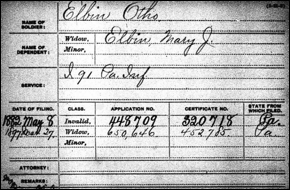 NAME OF SOLDIER: Elbin Otho
NAME OF DEPENDENT: Widow, Elbin, Mary J.
Minor,
SERVICE: I 91 Pa. Inf
DATE OF FILING. CLASS. APPLICATION NO. CERTIFICATE NO. STATE FROM WHICH FILED.
1882 May 8 Invalid, 448709 320718 Pa.
1897 27. Widow, 650,646 452,785 Pa
Minor,
ATTORNEY:
REMARKS: